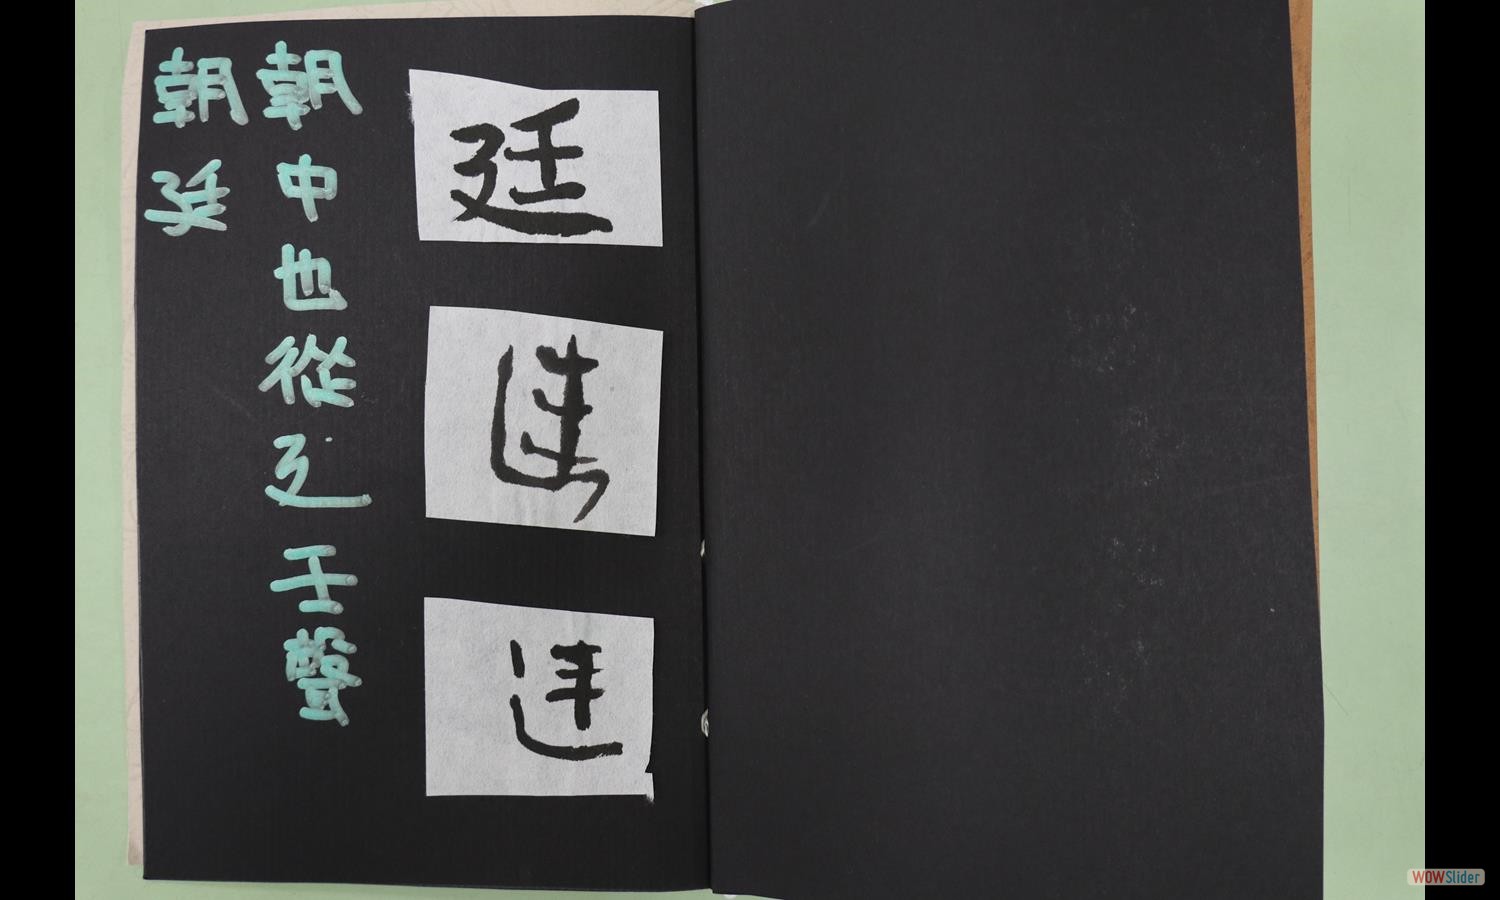 廷
朝中也從廴壬聲
朝廷
WOWSlider